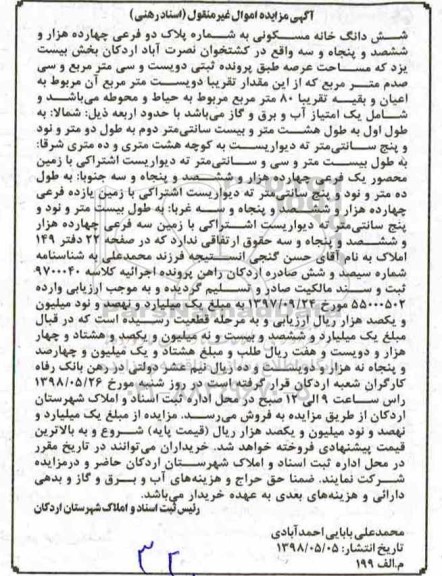 آگهی مزایده اموال غیرمنقول (اسنادرهنی)
شــش دانگ خانه مســکونی به شــماره پلاک دو فرعی چهارده هزار و
ششصد و پنجاه و سه واقع در کشتخوان نصرت آباد اردکان بخش بیست
یزد که مساحت عرصه طبق پرونده ثبتی دویست و سی متر مربع و سی
صدم متــر مربع که از این مقدار تقریبا دویست متر مربع آن مربوط به
اعیان و بقیــه تقریبا ۸۰ متر مربع مربوط به حیاط و محوطه می‌باشــد و
شامل یک امتیاز آب و برق و گاز می‌باشد با حدود اربعه ذیل: شمالا: به
طول اول به طول هشــت متر و بیست سانتی‌متر دوم به طول دو متر و نود
و پنج سانتی‌متر ته دیواریست به کوچه هشت متری و ده متری شرقا:
به طول بیست متر و سی و سانتی‌متر ته دیواریست اشتراکی با زمین
محصور یک فرعی چهارده هزار و ششصد و پنجاه و سه جنوبا: به طول
ده متر و نود و پنج سانتی‌متر ته دیواریست اشتراکی با زمین یازده فرعی
چهارده هزار و ششصد و پنجاه و سه غربا: به طول بیست متر و نود و
پنج سانتی‌متر ته دیواریست اشتراکی با زمین سه فرعی چهارده هزار
و ششصد و پنجاه و سه حقوق ارتفاقی ندارد که در صفحه ۲۲ دفتر ۱۴۹
املاک به نام آقای حسن گنجی انستیجه فرزند محمدعلی به شناسنامه
شماره سیصد و شش صادره اردکان راهن پرونده اجرائیه کلاسه ۹۷۰۰۰۴۰
ثبت و سند مالکیت صادر و تسلیم گردیده و به موجب ارزیابی وارده
۵۵۰۰۰۵۰۲ مورخ ۱۳۹۷/۰۹/۲۴ به مبلغ یک میلیارد و نهصد و نود میلیون
و یکصد هزار ریال ارزیابی و به مرحله قطعیت رسیده است که در قبال
مبلغ یک میلیارد و ششصد و بیست و نه میلیون و یکصد و هشتاد و چهار
هزار و دویست و هفت ریال طلب و مبلغ هشتاد و یک میلیون و چهارصد
و پنجاه نه هزار و دویست و ده ریال نیم عشر دولتی در رهن بانک رفاه
کارگران شعبه اردکان قرار گرفته است در روز شنبه مورخ ۱۳۹۸/۰۵/۲۶
راس ساعت ۹ الی ۱۲ صبح در محل اداره ثبت اسناد و املاک شهرستان
اردکان از طریق مزایده به فروش می‌رسد. مزایده از مبلغ یک میلیارد و
نهصد و نود میلیون و یکصد هزار ریال (قیمت پایه) شروع و به بالاترین
قیمت پیشنهادی فروخته خواهد شد. خریداران می‌توانند در تاریخ مقرر
در محل اداره ثبت اسناد و املاک شهرستان اردکان حاضر و درمزایده
شرکت نمایند. ضمنا حق حراج و هزینه‌های آب و برق و گاز و بدهی
دارائی و هزینه‌های بعدی به عهده خریدار می‌باشد.
رئیس ثبت اسناد و املاک شهرستان اردکان
محمدعلی بابایی احمدآبادی
تاریخ انتشار: ۱۳۹۸/۰۵/۰۵
م.الف ۱۹۹